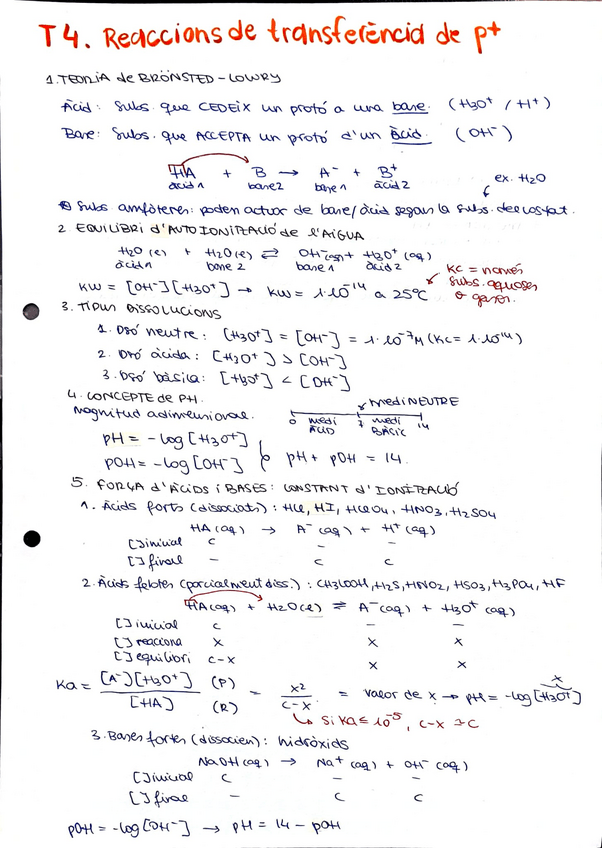 T4. Reaccions de transferència de p+
1. TEORIA de BRÖNSTED-LOWRY
Àcid: Subs. que CEDEIX un protó a una base. (H3O+ / H+)
Base: Subs. que ACCEPTA un protó d'un àcid. (OH-)
HA + B → A- + B+
àcid 1 base 2 base 1 àcid 2
ex. H2O
Subs amfòteres: poden actuar de base/àcid segons la subs. del costat.
2 EQUILIBRI d'AUTOIONITZACIÓ de l'AIGUA
H2O (l) + H2O (l) ⇄ OH- (aq) + H3O+ (aq)
àcid 1 base 2 base 1 àcid 2
Kc = només
subs. aquoses
o gasos.
Kw = [OH-][H3O+] → Kw = 1·10-14 a 25ºC
3. TIPUS DISSOLUCIONS
1. Dsó neutre: [H3O+] = [OH-] = 1·10-7 M (Kc = 1·10-14)
2. Dsó àcida: [H3O+] > [OH-]
3. Dsó bàsica: [H3O+] < [OH-]
4. CONCEPTE de PH.
Magnitud adimensional.
medi NEUTRE
0 medi ÀCID 7 medi BÀSIC 14
pH = -log [H3O+]
pOH = -log [OH-]
pH + pOH = 14.
5. FORÇA d'ÀCIDS i BASES: CONSTANT d'IONITZACIÓ
1. Àcids forts (dissociats): HCl, HI, HClO4, HNO3, H2SO4
HA (aq) → A- (aq) + H+ (aq)
[] inicial c - -
[] final - c c
2. Àcids febles (parcialment diss.): CH3COOH, H2S, HNO2, HSO3, H3PO4, HF
HA (aq) + H2O (l) ⇌ A- (aq) + H3O+ (aq)
[] inicial c - -
[] reacciona x x x
[] equilibri c-x x x
Ka = [A-][H3O+] (P) / [HA] (R) = x2 / c-x = valor de x → pH = -log [H3O+]
x
Si Ka ≤ 10-5, c-x ≃ c
3. Bases fortes (dissocien): hidròxids
NaOH (aq) → Na+ (aq) + OH- (aq)
[] inicial c - -
[] final - c c
pOH = -log [OH-] → pH = 14 - pOH